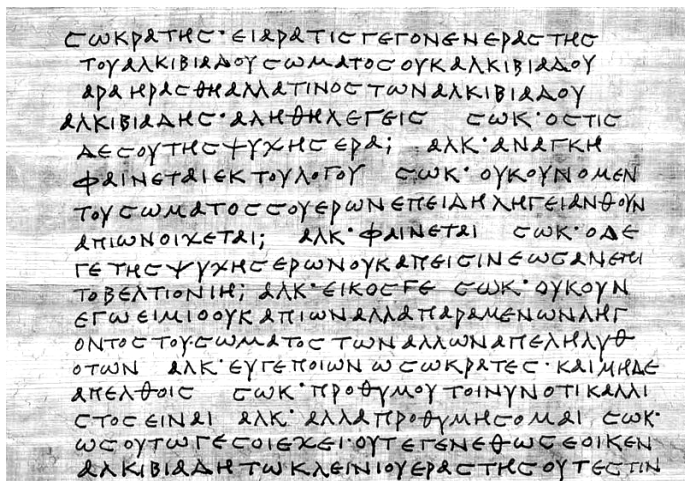 ΣΩΚΡΑΤΗΣ· ΕΙ ΑΡΑ ΤΙΣ ΓΕΓΟΝΕΝ ΕΡΑΣΤΗΣ
ΤΟΥ ΑΛΚΙΒΙΑΔΟΥ ΣΩΜΑΤΟΣ ΟΥΚ ΑΛΚΙΒΙΑΔΟΥ
ΑΡΑ ΗΡΑΣΘΗ ΑΛΛΑ ΤΙΝΟΣ ΤΩΝ ΑΛΚΙΒΙΑΔΟΥ
ΑΛΚΙΒΙΑΔΗΣ· ΑΛΗΘΗ ΛΕΓΕΙΣ ΣΩΚ· ΟΣΤΙΣ
ΔΕ ΣΟΥ ΤΗΣ ΨΥΧΗΣ ΕΡΑ; ΑΛΚ· ΑΝΑΓΚΗ
ΦΑΙΝΕΤΑΙ ΕΚ ΤΟΥ ΛΟΓΟΥ ΣΩΚ· ΟΥΚΟΥΝ Ο ΜΕΝ
ΤΟΥ ΣΩΜΑΤΟΣ ΣΟΥ ΕΡΩΝ ΕΠΕΙΔΗ ΛΗΓΕΙ ΑΝΘΟΥΝ
ΑΠΙΩΝ ΟΙΧΕΤΑΙ; ΑΛΚ· ΦΑΙΝΕΤΑΙ ΣΩΚ· Ο ΔΕ
ΓΕ ΤΗΣ ΨΥΧΗΣ ΕΡΩΝ ΟΥΚ ΑΠΕΙΣΙΝ ΕΩΣ ΑΝ ΕΠΙ
ΤΟ ΒΕΛΤΙΟΝ ΙΗ; ΑΛΚ· ΕΙΚΟΣ ΓΕ ΣΩΚ· ΟΥΚΟΥΝ
ΕΓΩ ΕΙΜΙ Ο ΟΥΚ ΑΠΙΩΝ ΑΛΛΑ ΠΑΡΑΜΕΝΩΝ ΛΗΓ
ΟΝΤΟΣ ΤΟΥ ΣΩΜΑΤΟΣ ΤΩΝ ΑΛΛΩΝ ΑΠΕΛΗΛΥΘ
ΟΤΩΝ ΑΛΚ· ΕΥ ΓΕ ΠΟΙΩΝ Ω ΣΩΚΡΑΤΕΣ· ΚΑΙ ΜΗΔΕ
ΑΠΕΛΘΟΙΣ ΣΩΚ· ΠΡΟΘΥΜΟΥ ΤΟΙΝΥΝ ΟΤΙ ΚΑΛΛΙ
ΣΤΟΣ ΕΙΝΑΙ ΑΛΚ· ΑΛΛΑ ΠΡΟΘΥΜΗΣΟΜΑΙ ΣΩΚ·
ΩΣ ΟΥΤΩ ΓΕ ΣΟΙ ΕΧΕΙ· ΟΥΤ ΕΓΕΝΕΘ ΩΣ ΕΟΙΚΕΝ
ΑΛΚΙΒΙΑΔΗ ΤΩ ΚΛΕΙΝΙΟΥ ΕΡΑΣΤΗΣ ΟΥΤ ΕΣΤΙΝ